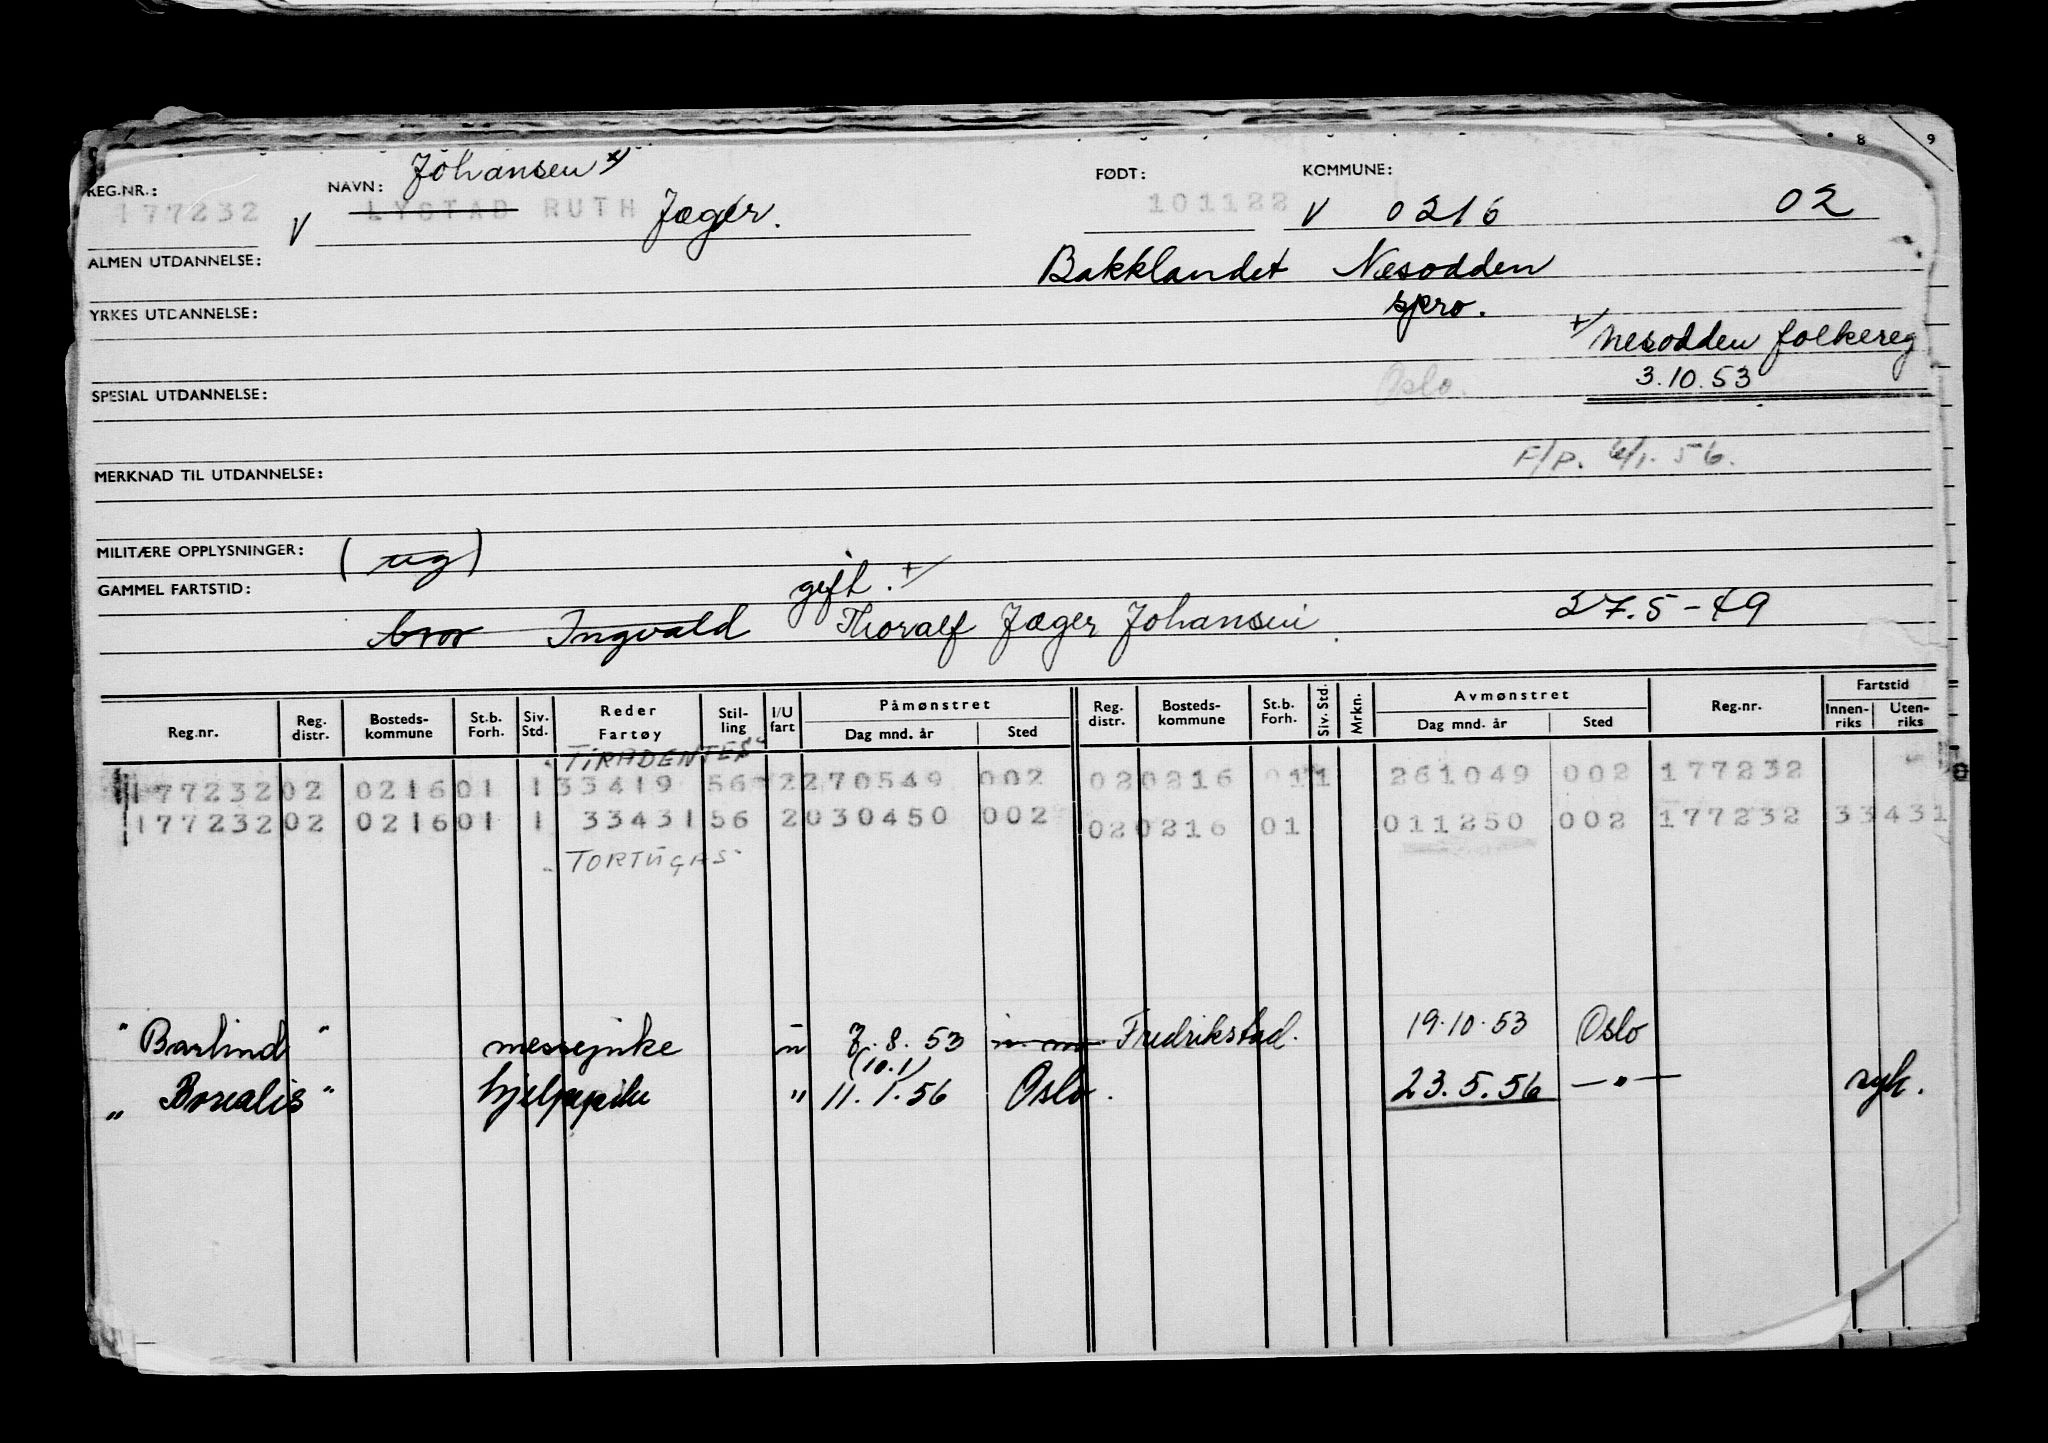 8 9
REG.NR.: NAVN: Johansen x) FØDT: KOMMUNE:
177232 V LYSTAD RUTH Jæger. 101122 V 0216 02
ALMEN UTDANNELSE: Bakklandet Nesodden
YRKES UTDANNELSE: spro.
+/ Nesodden folkereg
SPESIAL UTDANNELSE: Oslo. 3.10.53
MERKNAD TIL UTDANNELSE: F/P. 6/1. 56.
MILITÆRE OPPLYSNINGER: (ug)
GAMMEL FARTSTID: gift. +/
bror Ingvald Thoralf Jæger Johansen 27.5-49
Reg.nr. Reg. distr. Bosteds-kommune St.b. Forh. Siv. Std. Reder Fartøy Stil-ling I/U fart Påmønstret Dag mnd. år Sted Reg. distr. Bosteds-kommune St.b. Forh. Siv. Std. Mrkn. Avmønstret Dag mnd. år Sted Reg.nr. Fartstid Innen-riks Uten-riks
"TIRADENTES"
177232 02 0216 01 1 33419 56 2 270549 002 02 0216 01 1 261049 002 177232
177232 02 0216 01 1 33431 56 2 030450 002 02 0216 01 011250 002 177232 33431
"TORTUGAS"
"Barlind" messepike u 3.8.53 Fredrikstad. 19.10.53 Oslo
(10.1)
"Borealis" hjelpepike " 11.1.56 Oslo. 23.5.56 —"— syk.